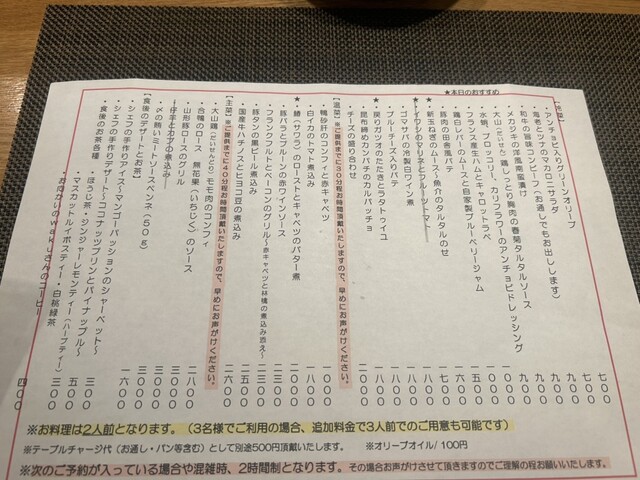 ★本日のおすすめ
【前菜】
・アンチョビ入りグリーンオリーブ 七〇〇
・海老とツナのマカロニサラダ 七〇〇
・和牛の旨味コンビーフ(お通しでもお出しします) 九〇〇
・メカジキの洋風南蛮漬け 九〇〇
・大山(だいせん)鶏 しっとり胸肉の春菊タルタルソース 九〇〇
・水蛸、ブロッコリー、カリフラワーのアンチョビドレッシング
・フランス産生ハムとキャロットラペ 一五〇〇
・鶏白レバーのムースと自家製ブルーベリージャム 一四〇〇
・豚肉の田舎風パテ 一七〇〇
★新玉ねぎのムース〜魚介のタルタルのせ 一八〇〇
★イカワシのマリネとフルーツトマト 一八〇〇
・ゴマサバの冷製白ワイン煮 一八〇〇
・ブルーチーズ入りパテ 一八〇〇
★戻りカツオのたたきとラタトゥイユ
・昆布締めカンパチのカルパッチョ
・チーズの盛り合わせ 二〇〇〇
【温菜】※ご提供までに30分程お時間頂戴いたしますので、早めにお声がけください。
・鴨砂肝のコンフィと赤キャベツ 一五〇〇
・白イカのトマト煮込み 一八〇〇
★鰆(サワラ)のローストとキャベツのバター煮 一八〇〇
・豚バラとプルーンの赤ワインソース 二〇〇〇
・フランクフルトとベーコンのグリル〜赤キャベツと林檎の煮込み添え〜 二三〇〇
・豚タンの黒ビール煮込み 二三〇〇
・国産牛ハチノスとヒヨコ豆の煮込み 二五〇〇
【主菜】※ご提供までに40分程お時間頂戴いたしますので、早めにお声がけください。
・大山鶏(だいせんどり)モモ肉のコンフィ 二六〇〇
・合鴨のロース 無花果(いちじく)のソース 二八〇〇
・山形豚ロースのグリル 三〇〇〇
・仔羊とカブの煮込み 三〇〇〇
・〆の賄いミートソースペンネ(50g) 一六〇〇
【食後のデザートとお茶】
・シェフの手作りアイス〜マンゴーパッションのシャーベット〜
・シェフの手作りデザート〜ココナッツプリンとパイナップル〜
・食後のお茶各種
・ほうじ茶・ジンジャーレモンティー(ハーブティー) 三〇〇
・マスカットルイボスティー・白桃緑茶 三〇〇
・お向かいのwakuさんのコーヒー 四〇〇
※お料理は2人前となります。(3名様でご利用の場合、追加料金で3人前でのご用意も可能です)
※テーブルチャージ代(お通し・パン等含む)として別途500円頂戴いたします。 ※オリーブオイル/100円
※次のご予約が入っている場合や混雑時、2時間制となります。その場合お声がけさせて頂きますのでご理解の程お願いいたします。